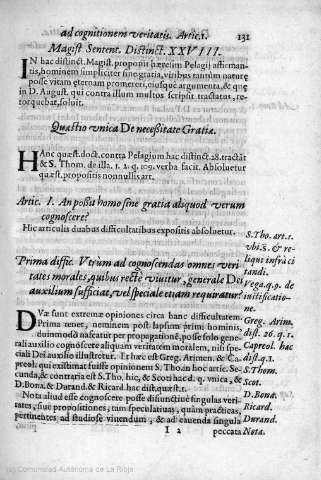 ad cognitionem veritatis. Artic. 1. 131
Magist. Sentent. Distinct. XXVIII.
IN hac distinct. Magist. proponit hæresim Pelagij affirman-
tis, hominem simpliciter sine gratia, viribus tantum naturæ
posse vitam eternam promereri, eiusque argumenta, & quę
in D. August. qui contra illum multos scripsit tractatus, re-
torquebat, soluit.
Quæstio vnica De necessitate Gratiæ.
HAnc quæst. doct. contra Pelagium hac distinct. 28. tractāt
& S. Thom. de illa. 1. 2. q. 109. verba facit. Absoluetur
quæst. propositis nonnullis art.
Artic. I. An possit homo sine gratia aliquod verum
cognoscere?
Hic articulus duabus difficultatibus expositis absoluetur.
Prima diffic. Vtrum ad cognoscendas omnes veri
tates morales, quibus rectè viuitur, generale Dei
auxilium sufficiat, vel speciale etiam requiratur?
DVæ sunt extremæ opiniones circa hanc difficultatem.
Prima tenet, neminem post lapsum primi hominis,
duummodò nascatur per propagationē, posse solo gene-
rali auxilio cognoscere aliquam veritatem moralem, nisi spe-
ciali Dei auxilio illustretur. Et hæc est Greg. Arimen. & Ca-
preol. qui existimat fuisse opinionem S. Tho. in hoc artic. Se-
cunda, & contraria est S. Tho. hic, & Scoti hac d. q. vnica, &
D. Bona. & Durand. & Ricard. hac dist. quæst. 1.
Nota aliud esse cognoscere posse disiunctiuè singulas veri-
tates, siue propositiones, tam speculatiuas, quàm practicas,
pertinentes ad studiosè viuendum, & ad cauenda singula
I 2 peccata
S. Tho. art. 1.
vbi. S. & re-
liqui infra ci
tandi.
Vega. q. 9. de
iustificatio-
ne.
Greg. Arim.
dist. 26. q. 1.
Capreol. hac
dist. q. 1.
S. Thom.
Scot.
D. Bona.
Ricard.
Durand.
Nota.
(c) Comunidad Autónoma de La Rioja